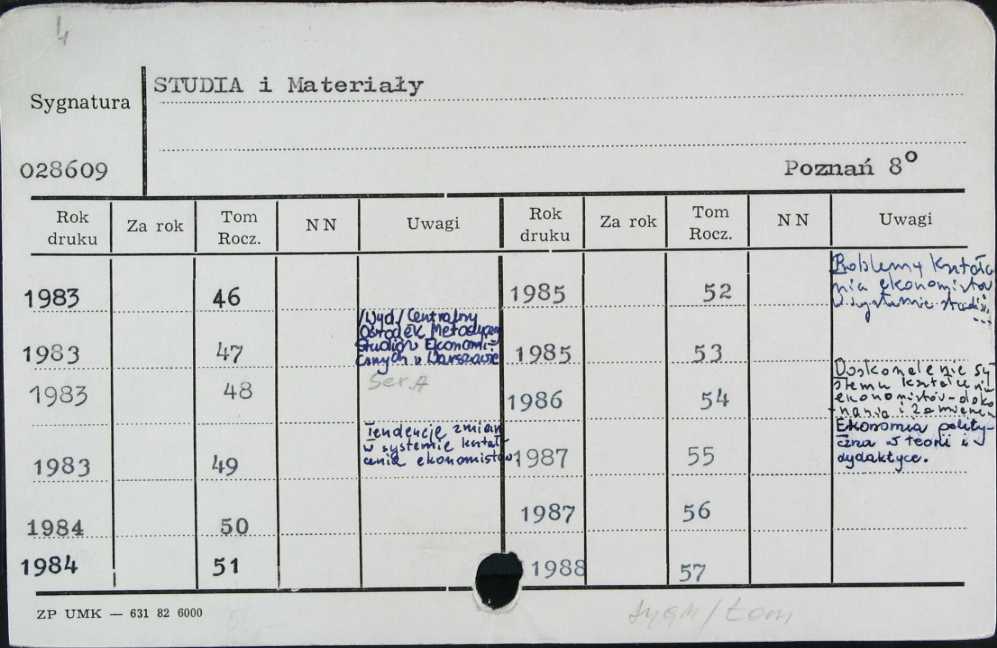 4
STUDIA i Materiały
Sygnatura
028609
Poznań 8°
Rok druku Za rok Tom Rocz. NN Uwagi Rok druku Za rok Tom Rocz. NN Uwagi
1983 46
1983 47 /Wyd./ Centralny
Ośrodek Metodyczny
Studiów Ekonomi-
cznych w Warszawie
1983 48 Ser. A
1983 49 Tendencje zmian
w systemie kształ-
cenia ekonomistów
1984 50
1984 51
1985 52 Problemy kształce
nia ekonomistów
w systemie studiów
...
1985 53
1986 54 Doskonalenie sy
stemu kształceni
ekonomistów - doko
nania i zamierzen
1987 55 Ekonomia polity-
czna w teorii i
dydaktyce.
1987 56
1988 57
ZP UMK — 631 82 6000
sygn/tom